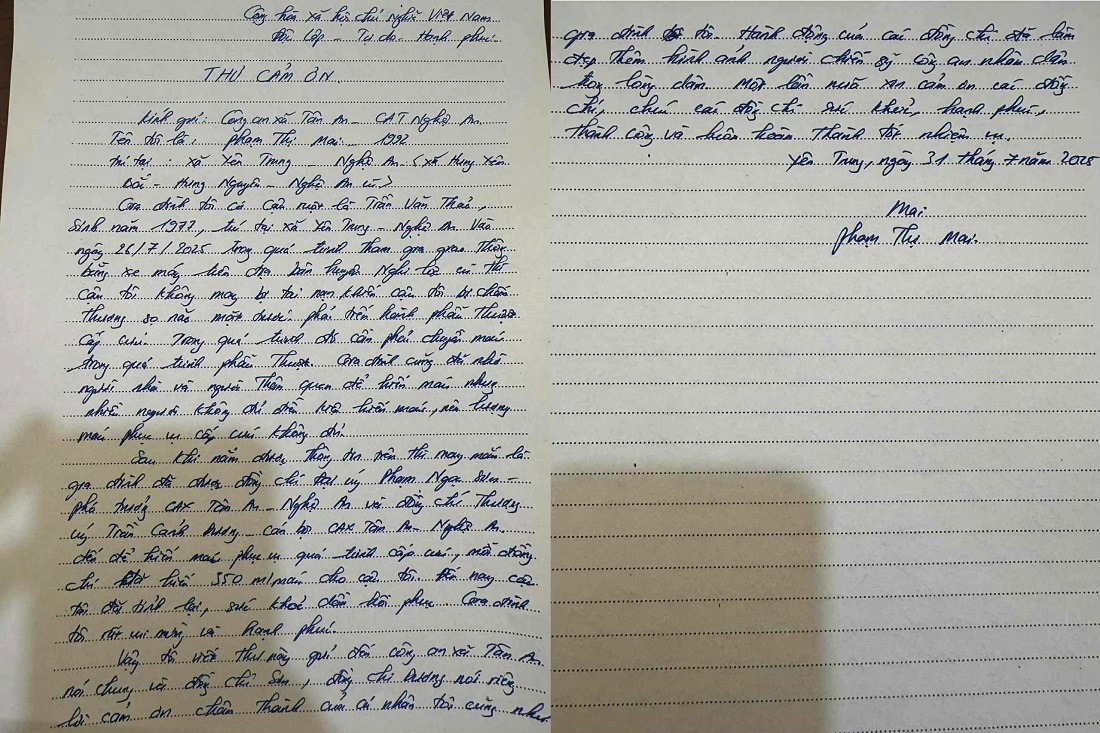 Cộng hòa xã hội chủ nghĩa Việt Nam
Độc lập - Tự do - Hạnh phúc.
THƯ CẢM ƠN.
Kính gửi: Công an xã Tân An - CAT Nghệ An.
Tên tôi là, Phạm Thị Mai - 1992
trú tại: xã Yên Trung - Nghệ An. (xã Hưng Yên
Bắc - Hưng Nguyên - Nghệ An cũ)
Gia đình tôi có cậu ruột là Trần Văn
Sinh năm 1977, trú tại xã Yên Trung - Nghệ An. Vào
ngày 26/7/2025 trong quá trình tham gia giao thông
bằng xe máy trên địa bàn huyện Nghi Lộc cũ thì
cậu tôi không may bị tai nạn khiến cậu tôi bị chấn
thương sọ não một dưới phải tiến hành phẫu thuật
cấp cứu. Trong quá trình đó cần phải chuyền máu
trong quá trình phẫu thuật. Gia đình cũng đã nhờ
người nhà và người thân quen để hiến máu nhưng
nhiều người không đủ điều kiện hiến máu, nên lượng
máu phục vụ cấp cứu không đủ.
Sau khi nắm được thông tin trên thì may mắn là
gia đình đã được đồng chí Đại úy Phạm Ngọc Sơn -
phó trưởng CAX Tân An - Nghệ An và đồng chí Thượng
úy Trần Cảnh Dương - cán bộ CAX Tân An - Nghệ An
đến để hiến máu phục vụ quá trình cấp cứu, mỗi đồng
chí hiến 350 ml máu cho cậu tôi. Đến nay cậu
tôi đã tỉnh lại, sức khoẻ dần hồi phục. Gia đình
tôi rất vui mừng và hạnh phúc.
Vậy tôi viết thư này gửi đến công an xã Tân An
nói chung và đồng chí Sơn, đồng chí Dương nói riêng
lời cảm ơn chân thành của cá nhân tôi cũng như
gia đình tôi. Hành động của các đồng chí đã làm
đẹp thêm hình ảnh người chiến sỹ công an nhân dân
trong lòng dân. Một lần nữa xin cảm ơn các đồng
chí, chúc các đồng chí sức khoẻ, hạnh phúc,
thành công và luôn hoàn thành tốt nhiệm vụ.
Yên Trung, ngày 31 tháng 7 năm 2025
Mai
Phạm Thị Mai.